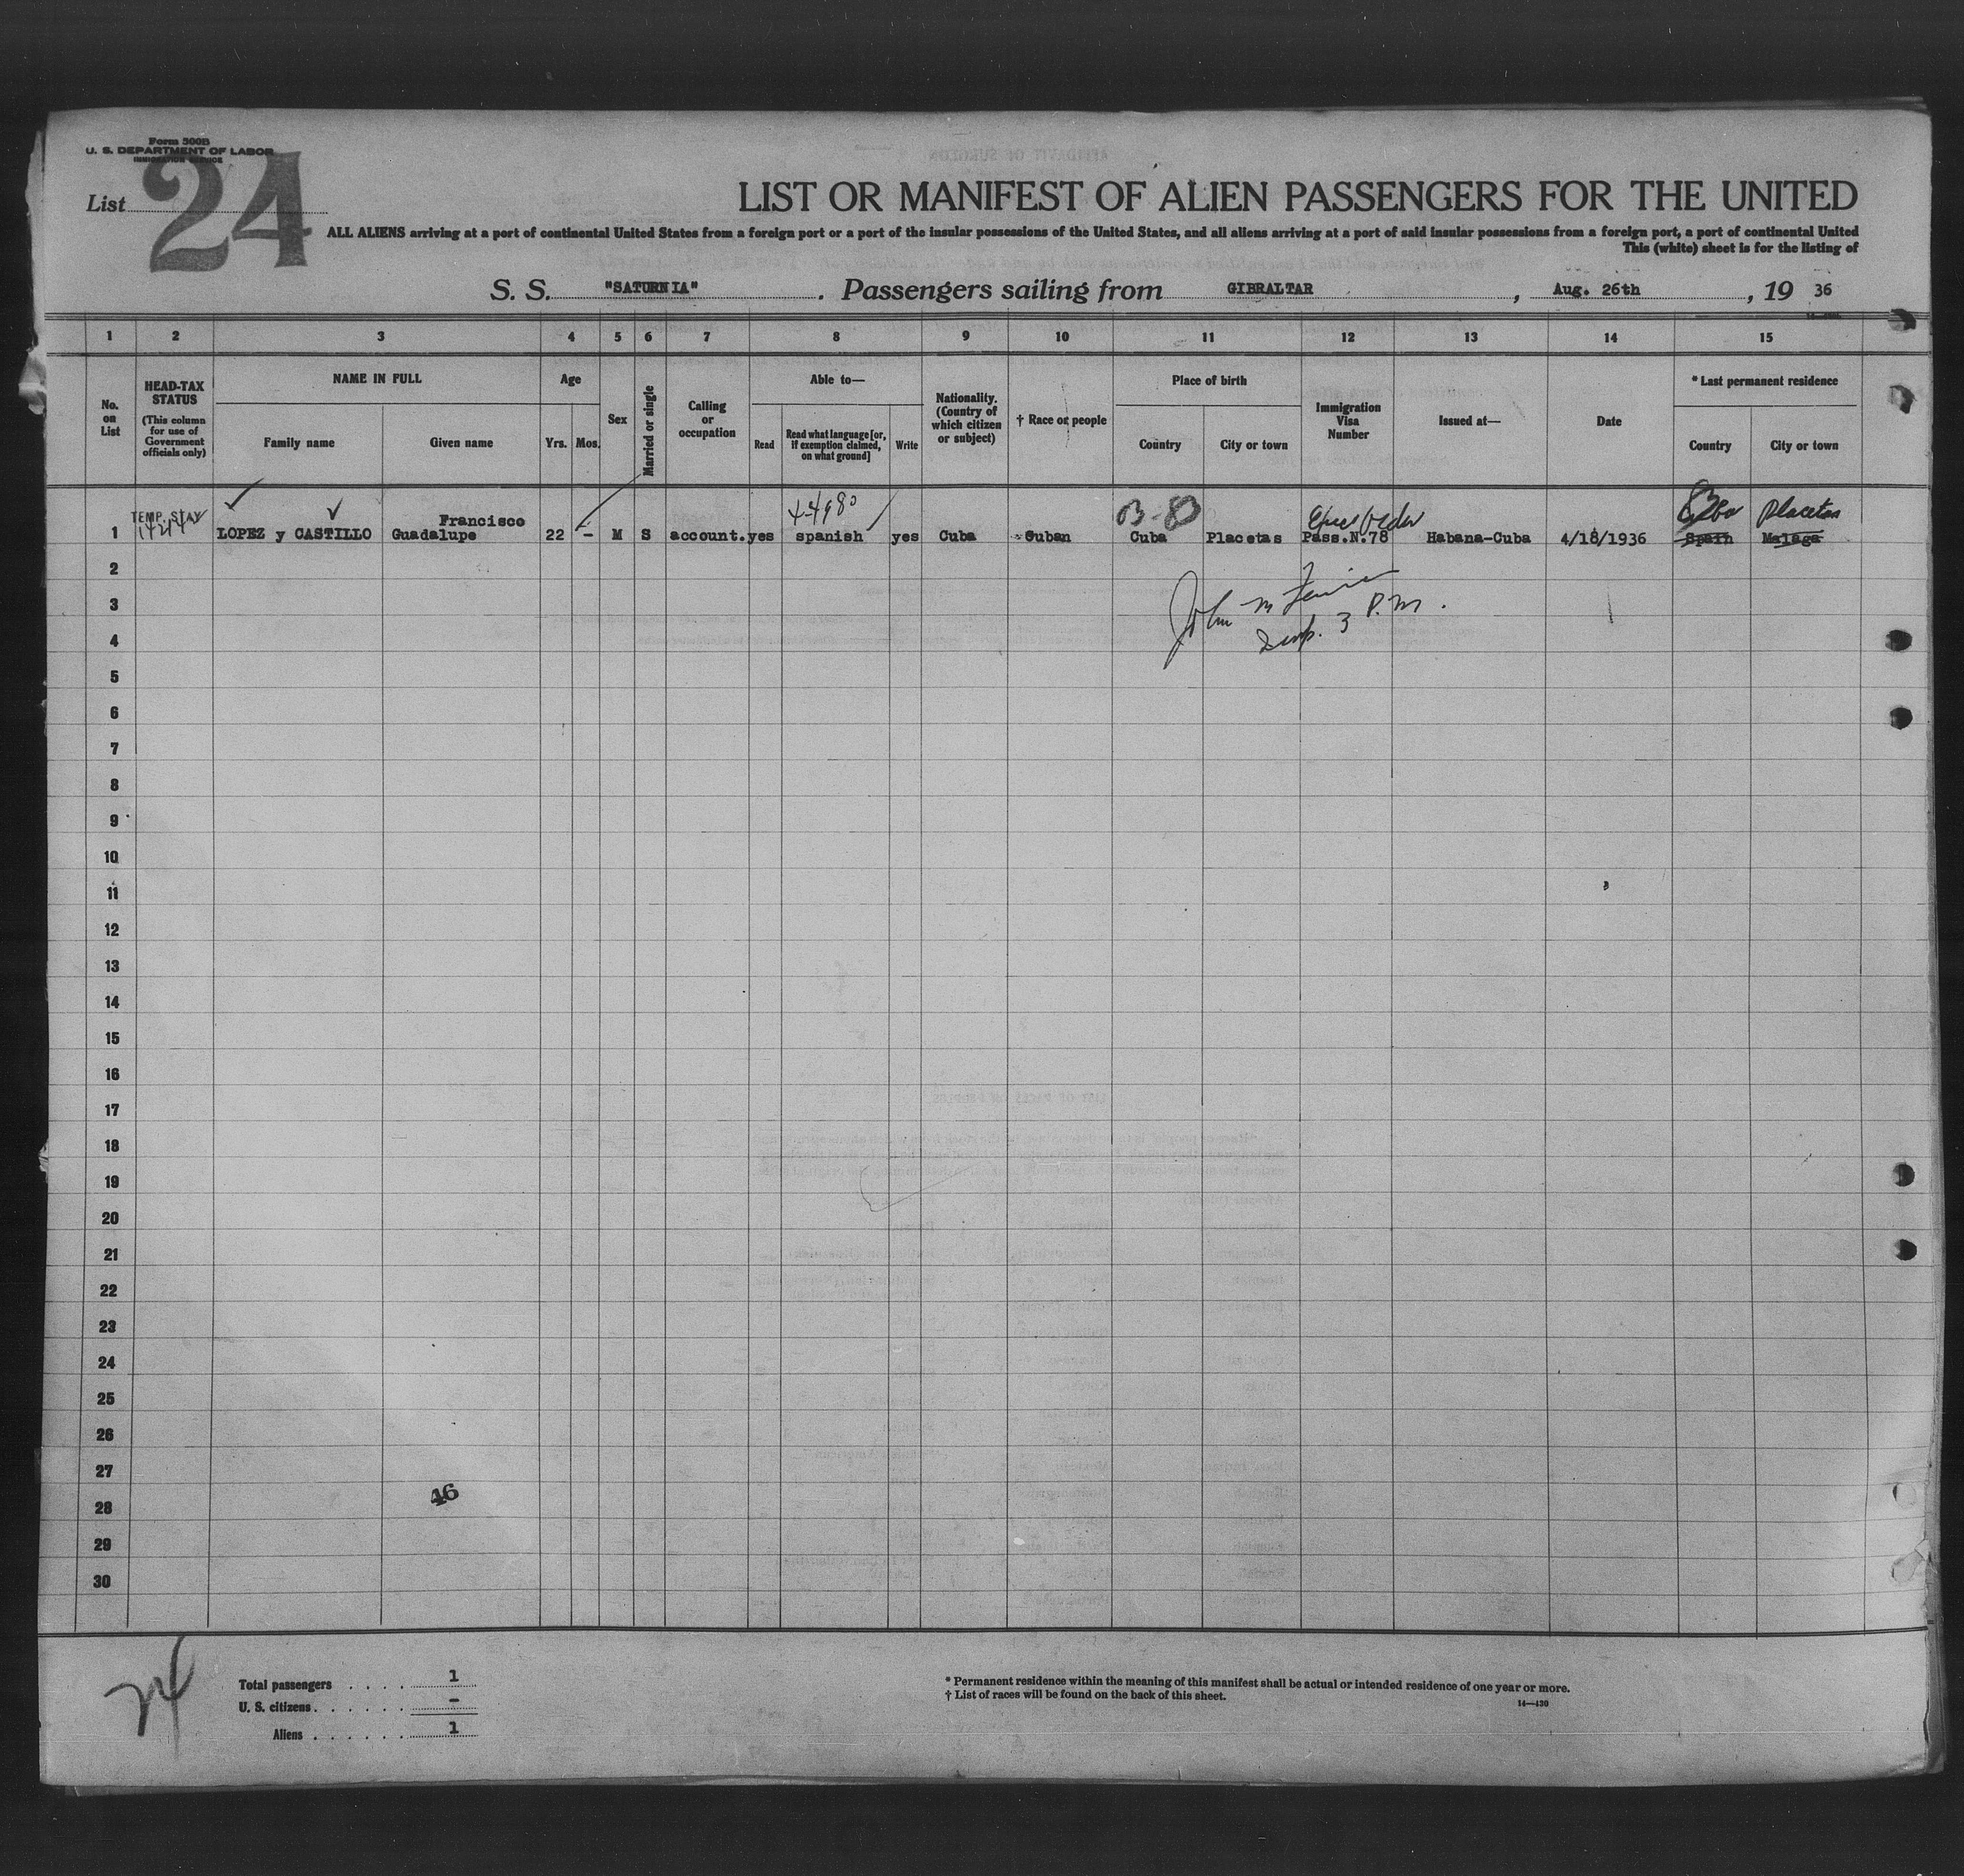 Form 500B
U. S. DEPARTMENT OF LABOR
IMMIGRATION SERVICE
List 24
LIST OR MANIFEST OF ALIEN PASSENGERS FOR THE UNITED
ALL ALIENS arriving at a port of continental United States from a foreign port or a port of the insular possessions of the United States, and all aliens arriving at a port of said insular possessions from a foreign port, a port of continental United
This (white) sheet is for the listing of
S. S. "SATURNIA" . Passengers sailing from GIBRALTAR , Aug. 26th , 19 36
1 2 3 4 5 6 7 8 9 10 11 12 13 14 15
No. on List
HEAD-TAX STATUS
(This column for use of Government officials only)
NAME IN FULL
Family name Given name
Age
Yrs. Mos.
Sex
Married or single
Calling or occupation
Able to—
Read Read what language [or, if exemption claimed, on what ground] Write
Nationality. (Country of which citizen or subject)
† Race or people
Place of birth
Country City or town
Immigration Visa Number
Issued at—
Date
* Last permanent residence
Country City or town
TEMP. STAY B-80 Cuba Placetas
Francisco
1 LOPEZ y CASTILLO Guadalupe 22 – M S account. yes spanish yes Cuba Cuban Cuba Placetas Pass.N.78 Habana-Cuba 4/18/1936 Spain Malaga
2
John M
3
3 P.M.
4
5
6
7
8
9
10
11
12
13
14
15
16
17
18
19
20
21
22
23
24
25
26
27
28 46
29
30
24
Total passengers . . . . 1
U. S. citizens . . . . . . –
Aliens . . . . . . 1
* Permanent residence within the meaning of this manifest shall be actual or intended residence of one year or more.
† List of races will be found on the back of this sheet.
14—430